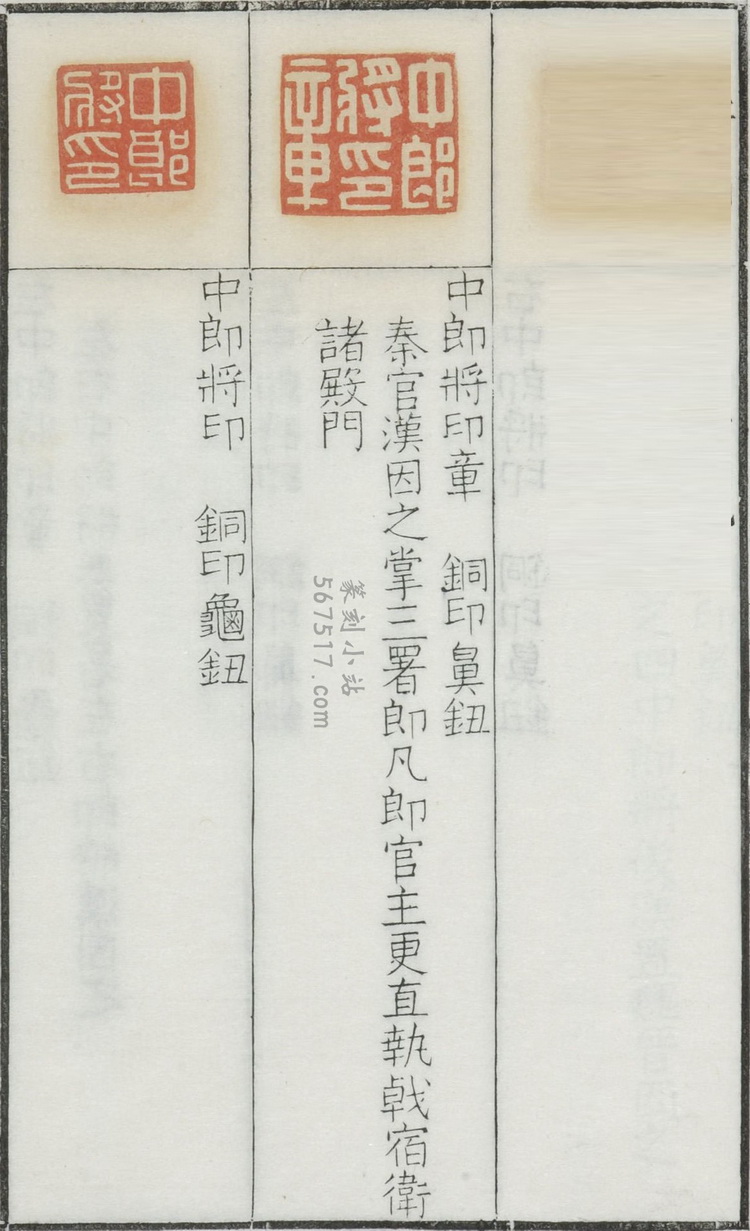 中郎將印章
中郎將印章　銅印鼻鈕
秦官漢因之掌三署郎凡郎官主更直執戟宿衛
諸殿門
篆刻小站
567517.com
中郎將印
中郎將印　銅印龜鈕